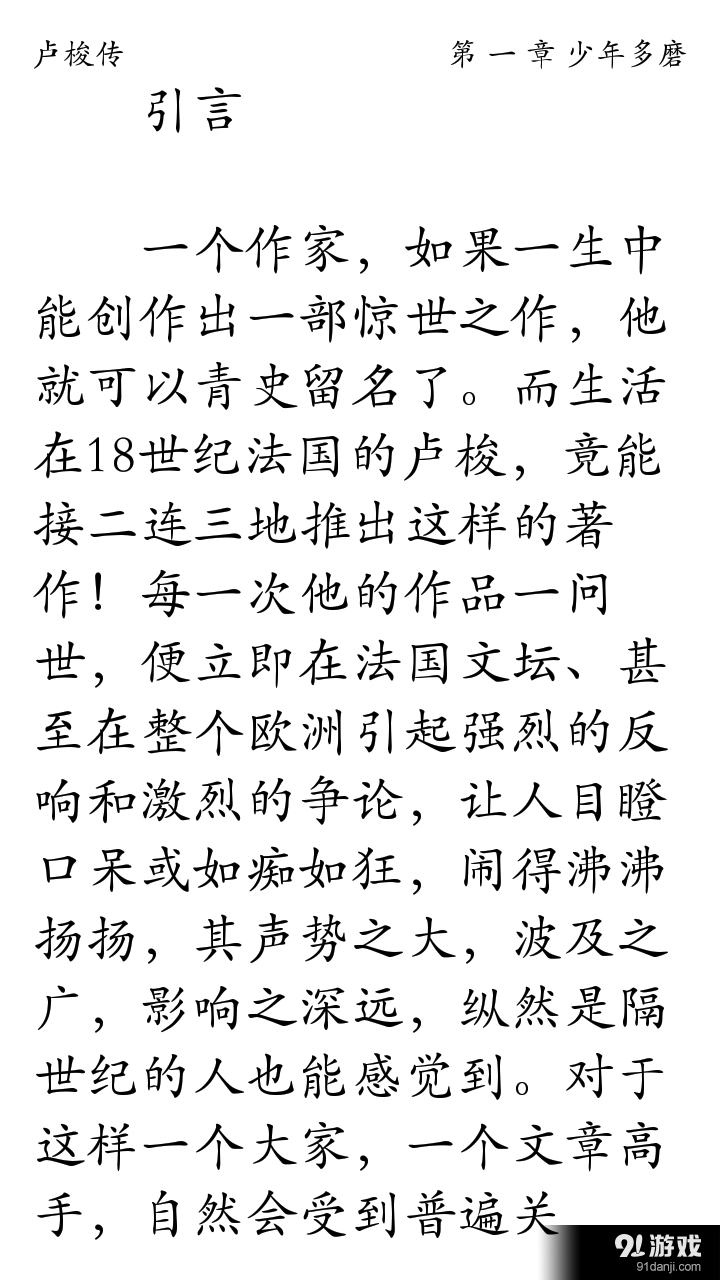 卢梭传 第一章 少年多磨
引言
一个作家，如果一生中
能创作出一部惊世之作，他
就可以青史留名了。而生活
在18世纪法国的卢梭，竟能
接二连三地推出这样的著
作！每一次他的作品一问
世，便立即在法国文坛、甚
至在整个欧洲引起强烈的反
响和激烈的争论，让人目瞪
口呆或如痴如狂，闹得沸沸
扬扬，其声势之大，波及之
广，影响之深远，纵然是隔
世纪的人也能感觉到。对于
这样一个大家，一个文章高
手，自然会受到普遍关
91游戏
91danji.com